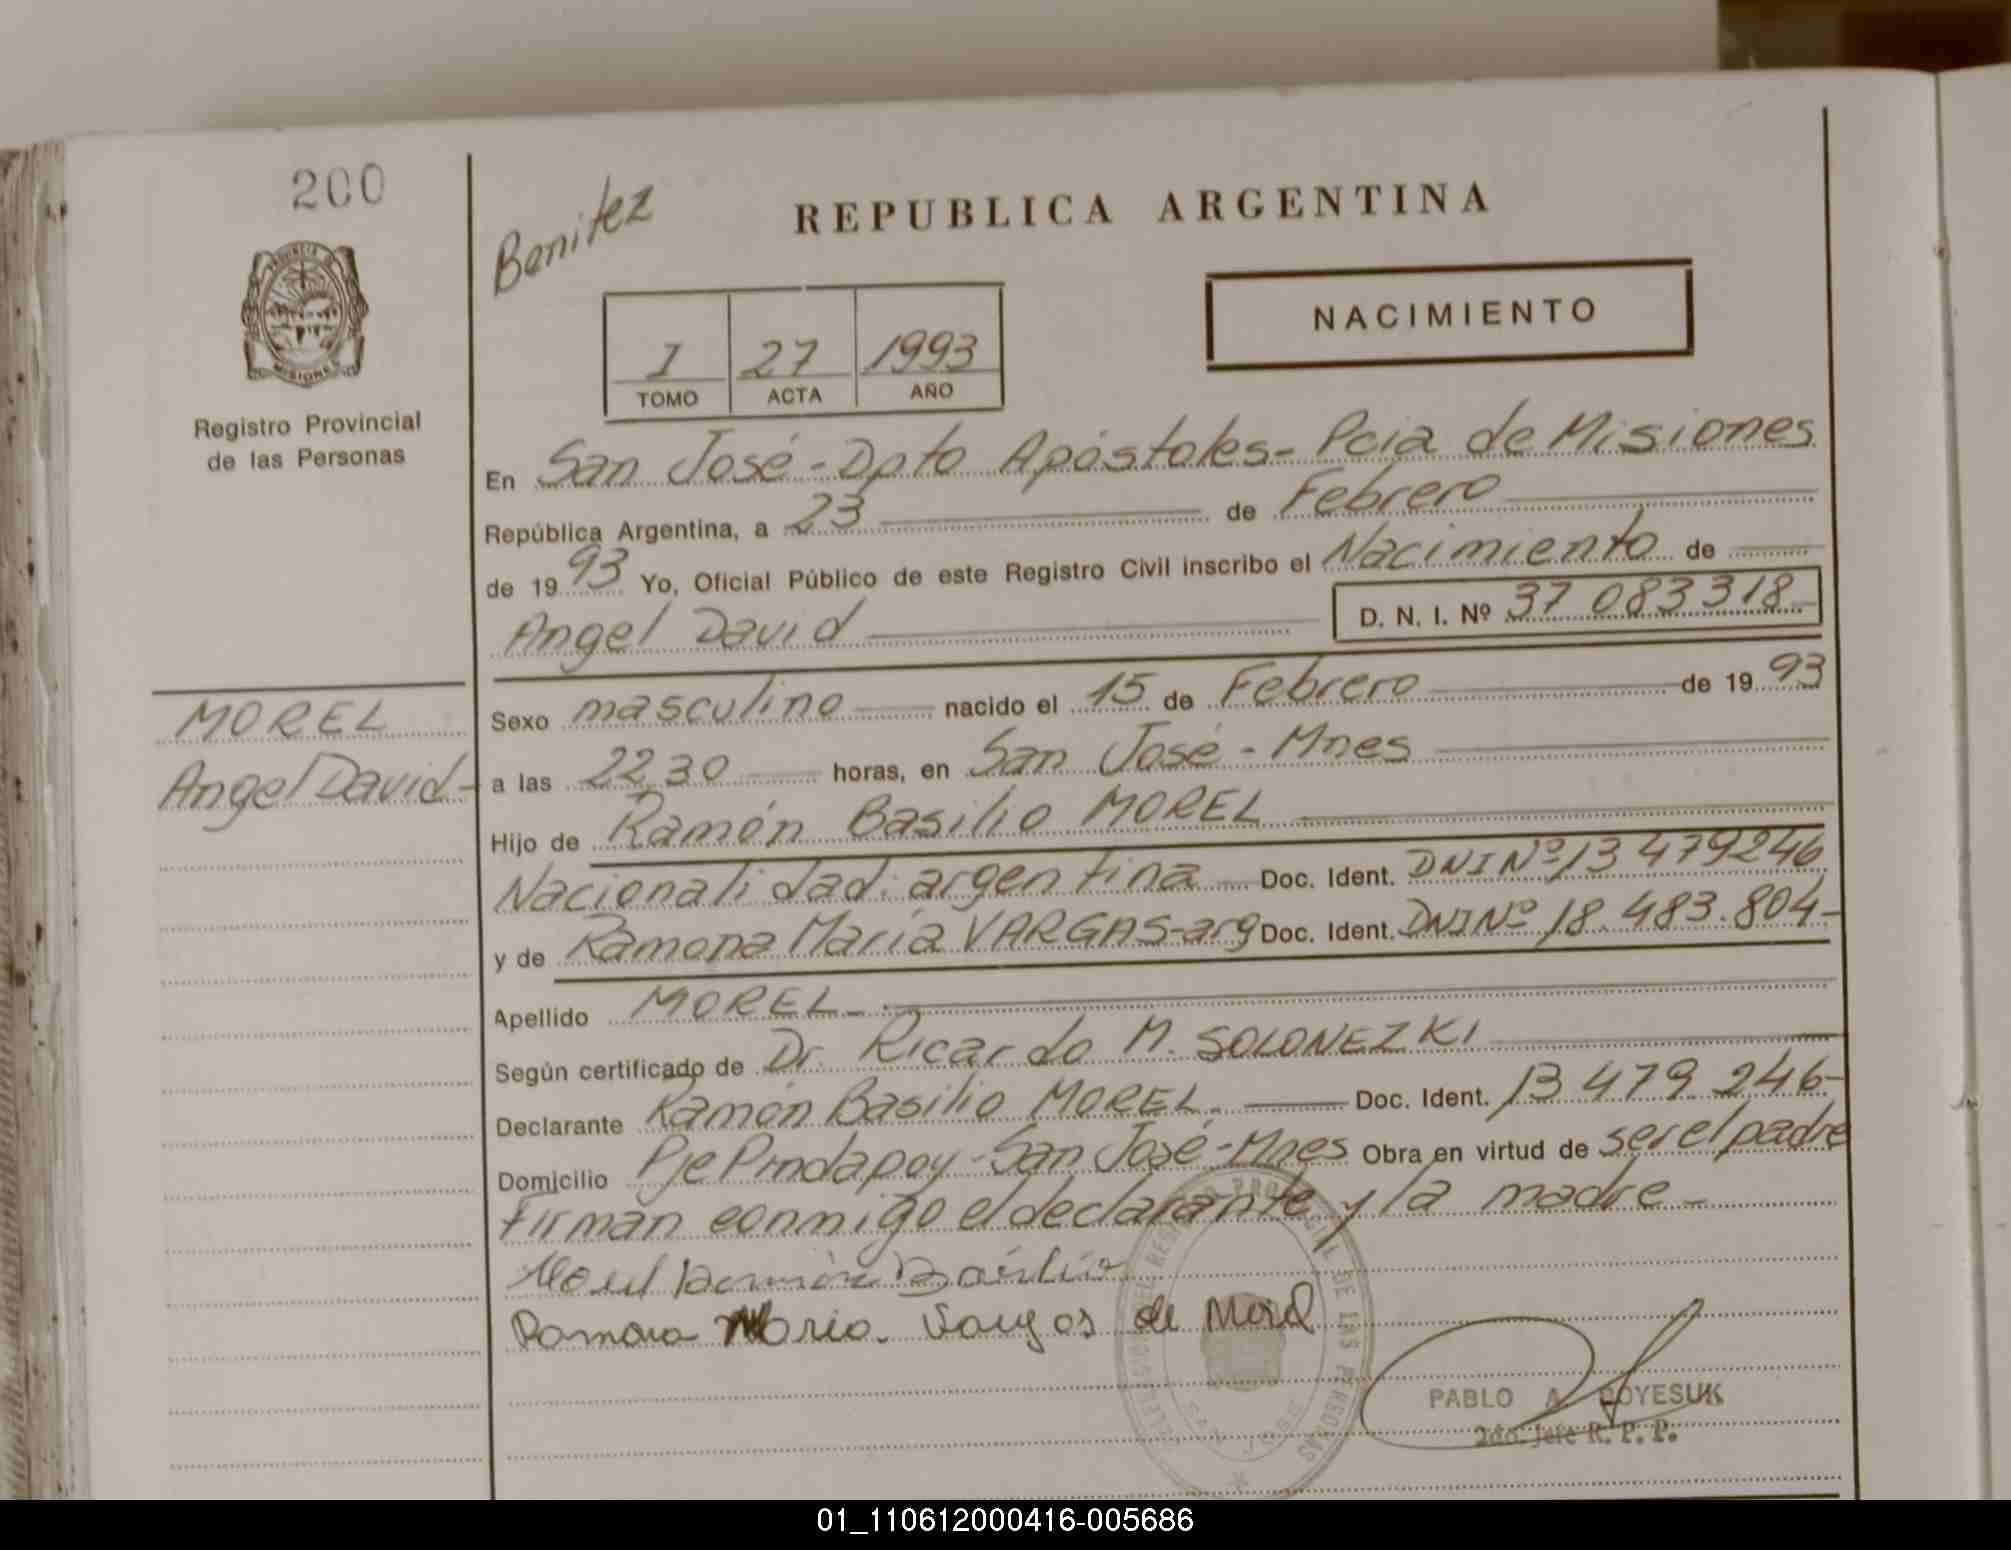 200
PROVINCIA DE
MISIONES
Registro Provincial
de las Personas
MOREL
Angel David-
Benitez
REPUBLICA ARGENTINA
NACIMIENTO
I 27 1993
TOMO ACTA AÑO
En San José - Dpto Apóstoles - Pcia de Misiones
República Argentina, a 23 de Febrero
de 19 93 Yo, Oficial Público de este Registro Civil inscribo el Nacimiento de
Angel David D. N. I. Nº 37 083 318
Sexo masculino nacido el 15 de Febrero de 19 93
a las 22,30 horas, en San José - Mnes
Hijo de Ramón Basilio MOREL
Nacionalidad: argentina Doc. Ident. DNI Nº 13 479246
y de Ramona María VARGAS-arg Doc. Ident. DNI Nº 18.483.804-
Apellido MOREL-
Según certificado de Dr. Ricardo M. SOLONEZKI
Declarante Ramón Basilio MOREL Doc. Ident. 13 479 246-
Domicilio Pje Pindapoy - San José - Mnes Obra en virtud de ser el padre
Firman conmigo el declarante y la madre-
Morel Ramón Basilio
Ramona Maria Vargas de Morel
REGISTRO PROVINCIAL DE LAS PERSONAS
SAN JOSE
PABLO A. BOYESUK
2do. Jefe R. P. P.
01_110612000416-005686